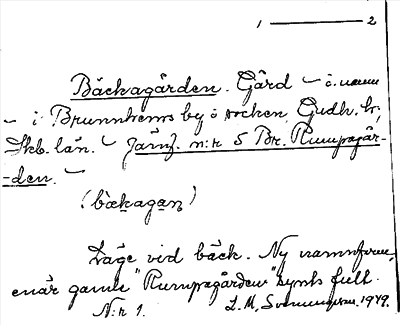 1 — 2
Bäckagården. Gård — o. namn
— i Brunnhems by o socken, Gudh. hd,
Skb. län. — Jämf. n:r 5 Br. Rumpagår-
-den. —
(bäkagan)
Läge vid bäck. Ny namnform,
enär gamla "Rumpagården" synts full.
N:r 1. L. M. 1949.